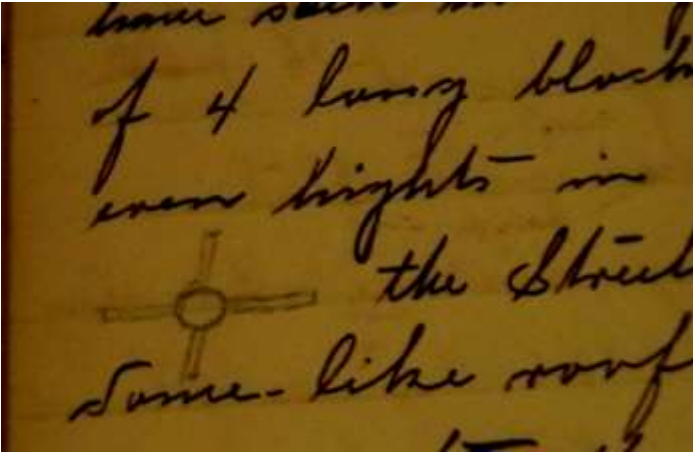 have seen
of 4 long block
even hights in
the Street
Dome-like roof